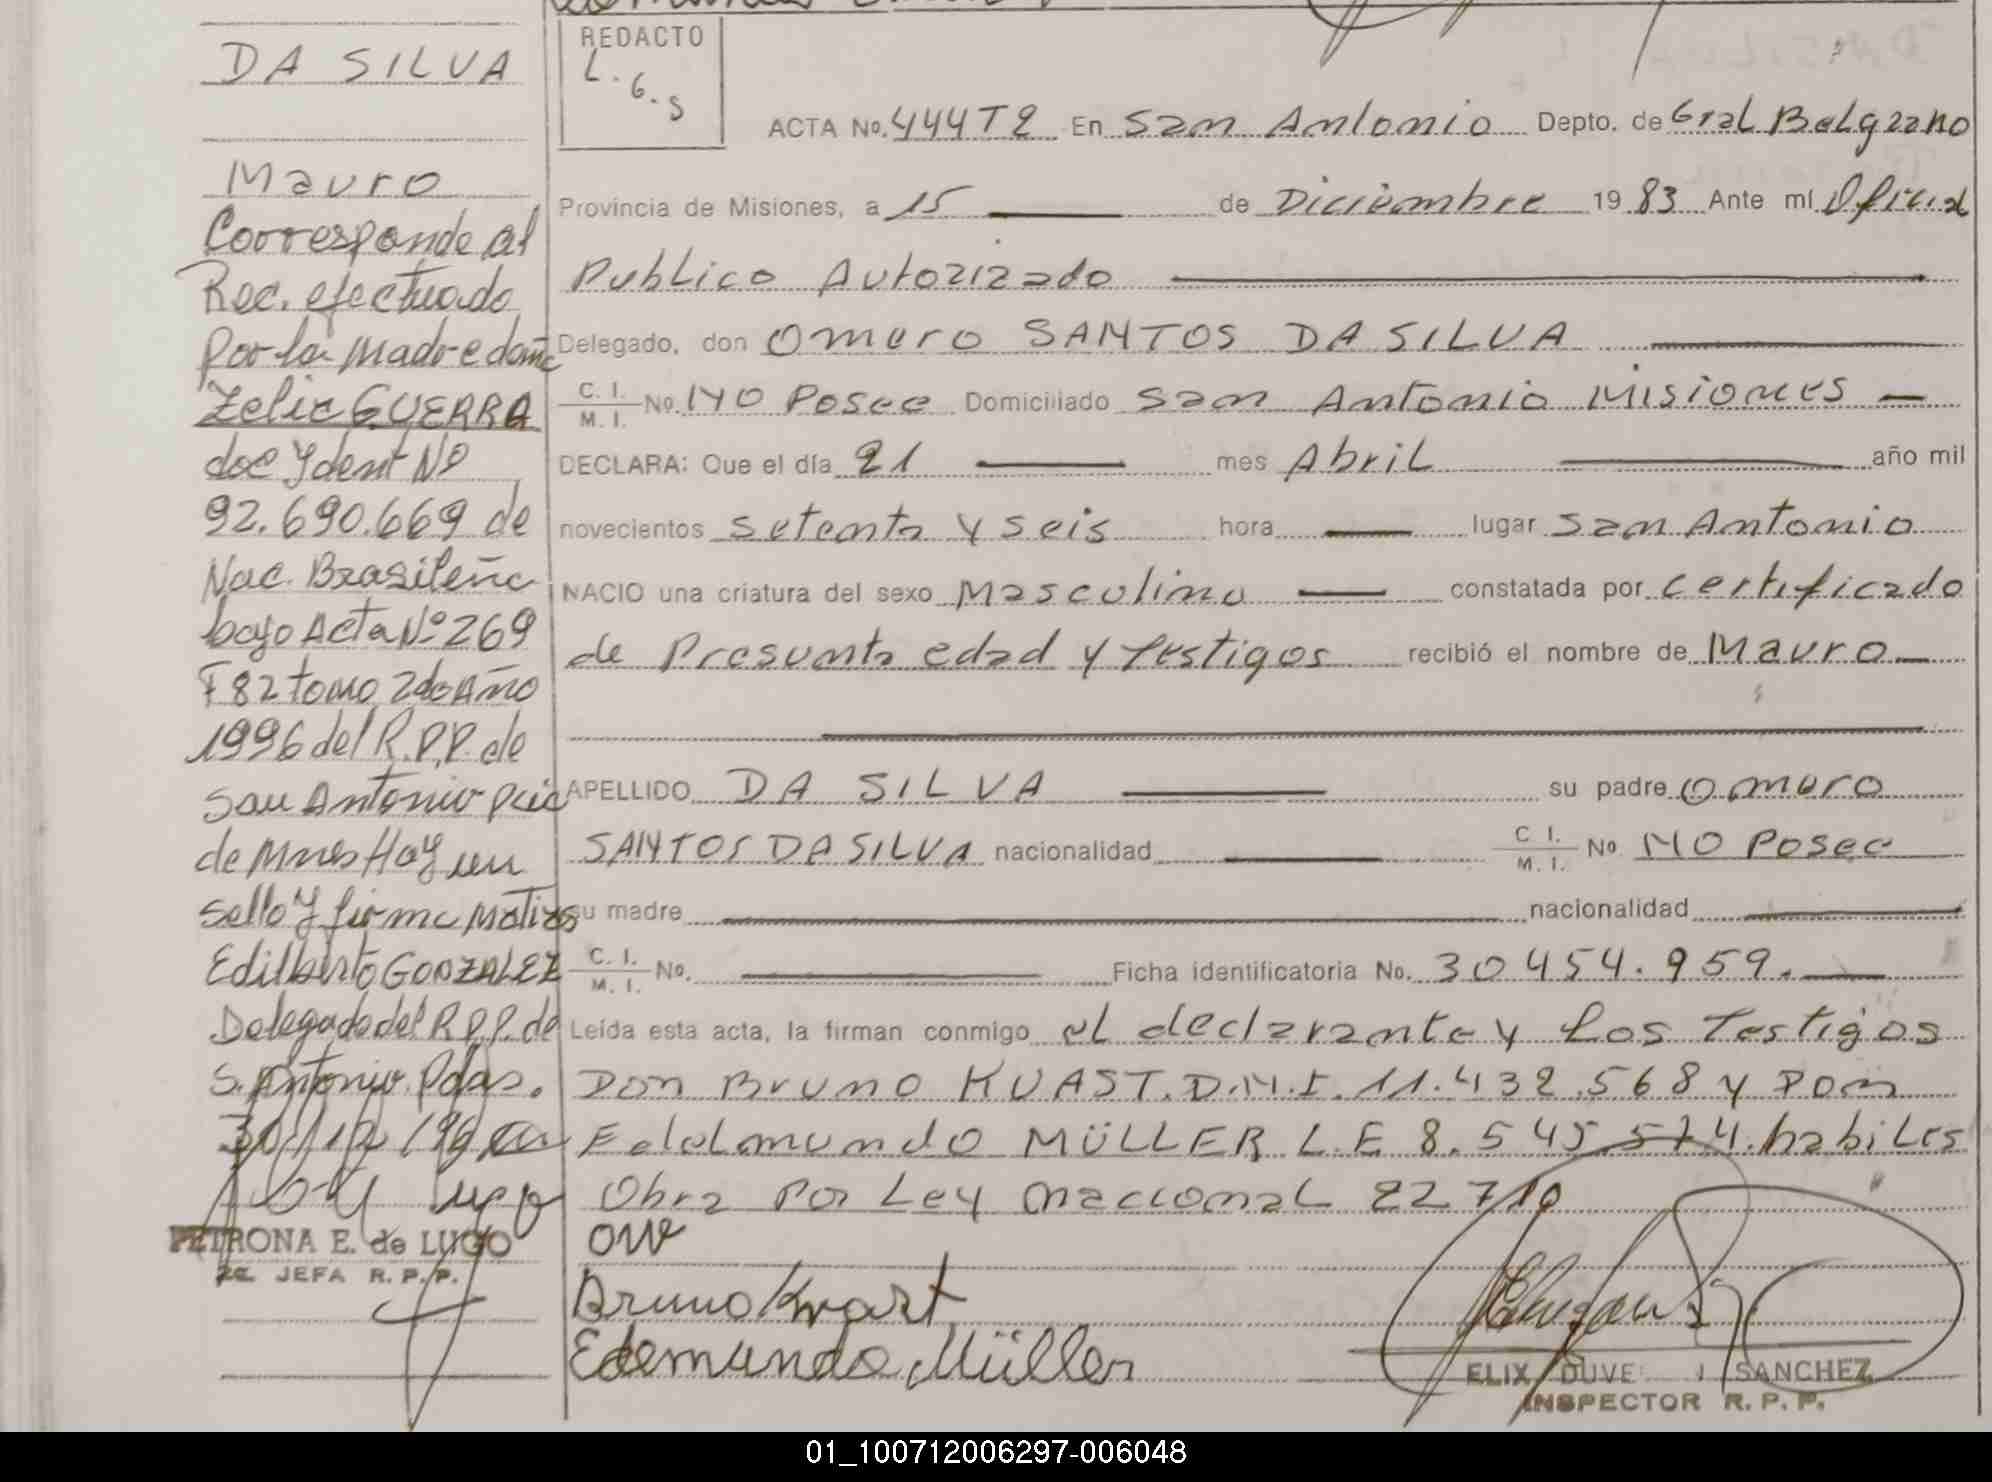 DA SILVA
Mauro
Corresponde al
Rec. efectuado
Por la Madre doña
Zelia GUERRA
doc Ydent Nº
92.690.669 de
Nac. Brasileña
bajo Acta Nº 269
F 82 tomo 2do Año
1996 del R.P.P. de
San Antonio Pcia
de Mnes Hay un
sello y firma Matias
Edilberto GONZALEZ
Delegado del R.P.P. de
S. Antonio. Pdas.
30/12/96
PETRONA E. de LUGO
JEFA R. P. P.
REDACTO
L. G. S
ACTA No. 444T2 En San Antonio Depto. de Gral Belgrano
Provincia de Misiones, a 15 de Diciembre 1983 Ante mí Oficial
Publico Autorizado
Delegado, don Omero SANTOS DA SILVA
C. I. / M. I. No. NO Posee Domiciliado San Antonio Misiones
DECLARA: Que el día 21 mes Abril año mil
novecientos setenta y seis hora lugar San Antonio
NACIO una criatura del sexo Masculino constatada por certificado
de Presunta edad y testigos recibió el nombre de Mauro
APELLIDO DA SILVA su padre Omero
SANTOS DA SILVA nacionalidad C I. / M. I. No NO Posee
su madre nacionalidad
C. I. / M. I. No. Ficha identificatoria No. 30454.959.
Leída esta acta, la firman conmigo el declarante y los Testigos
Don Bruno KUAST. D.N.I. 11.432.568 y Don
Edelmundo MÜLLER L.E 8.545.574. habiles
Obra Por Ley Nacional 22710
Bruno Kvast
Edemundo Müller
ELIX DUVE J SANCHEZ
INSPECTOR R. P. P.
01_100712006297-006048